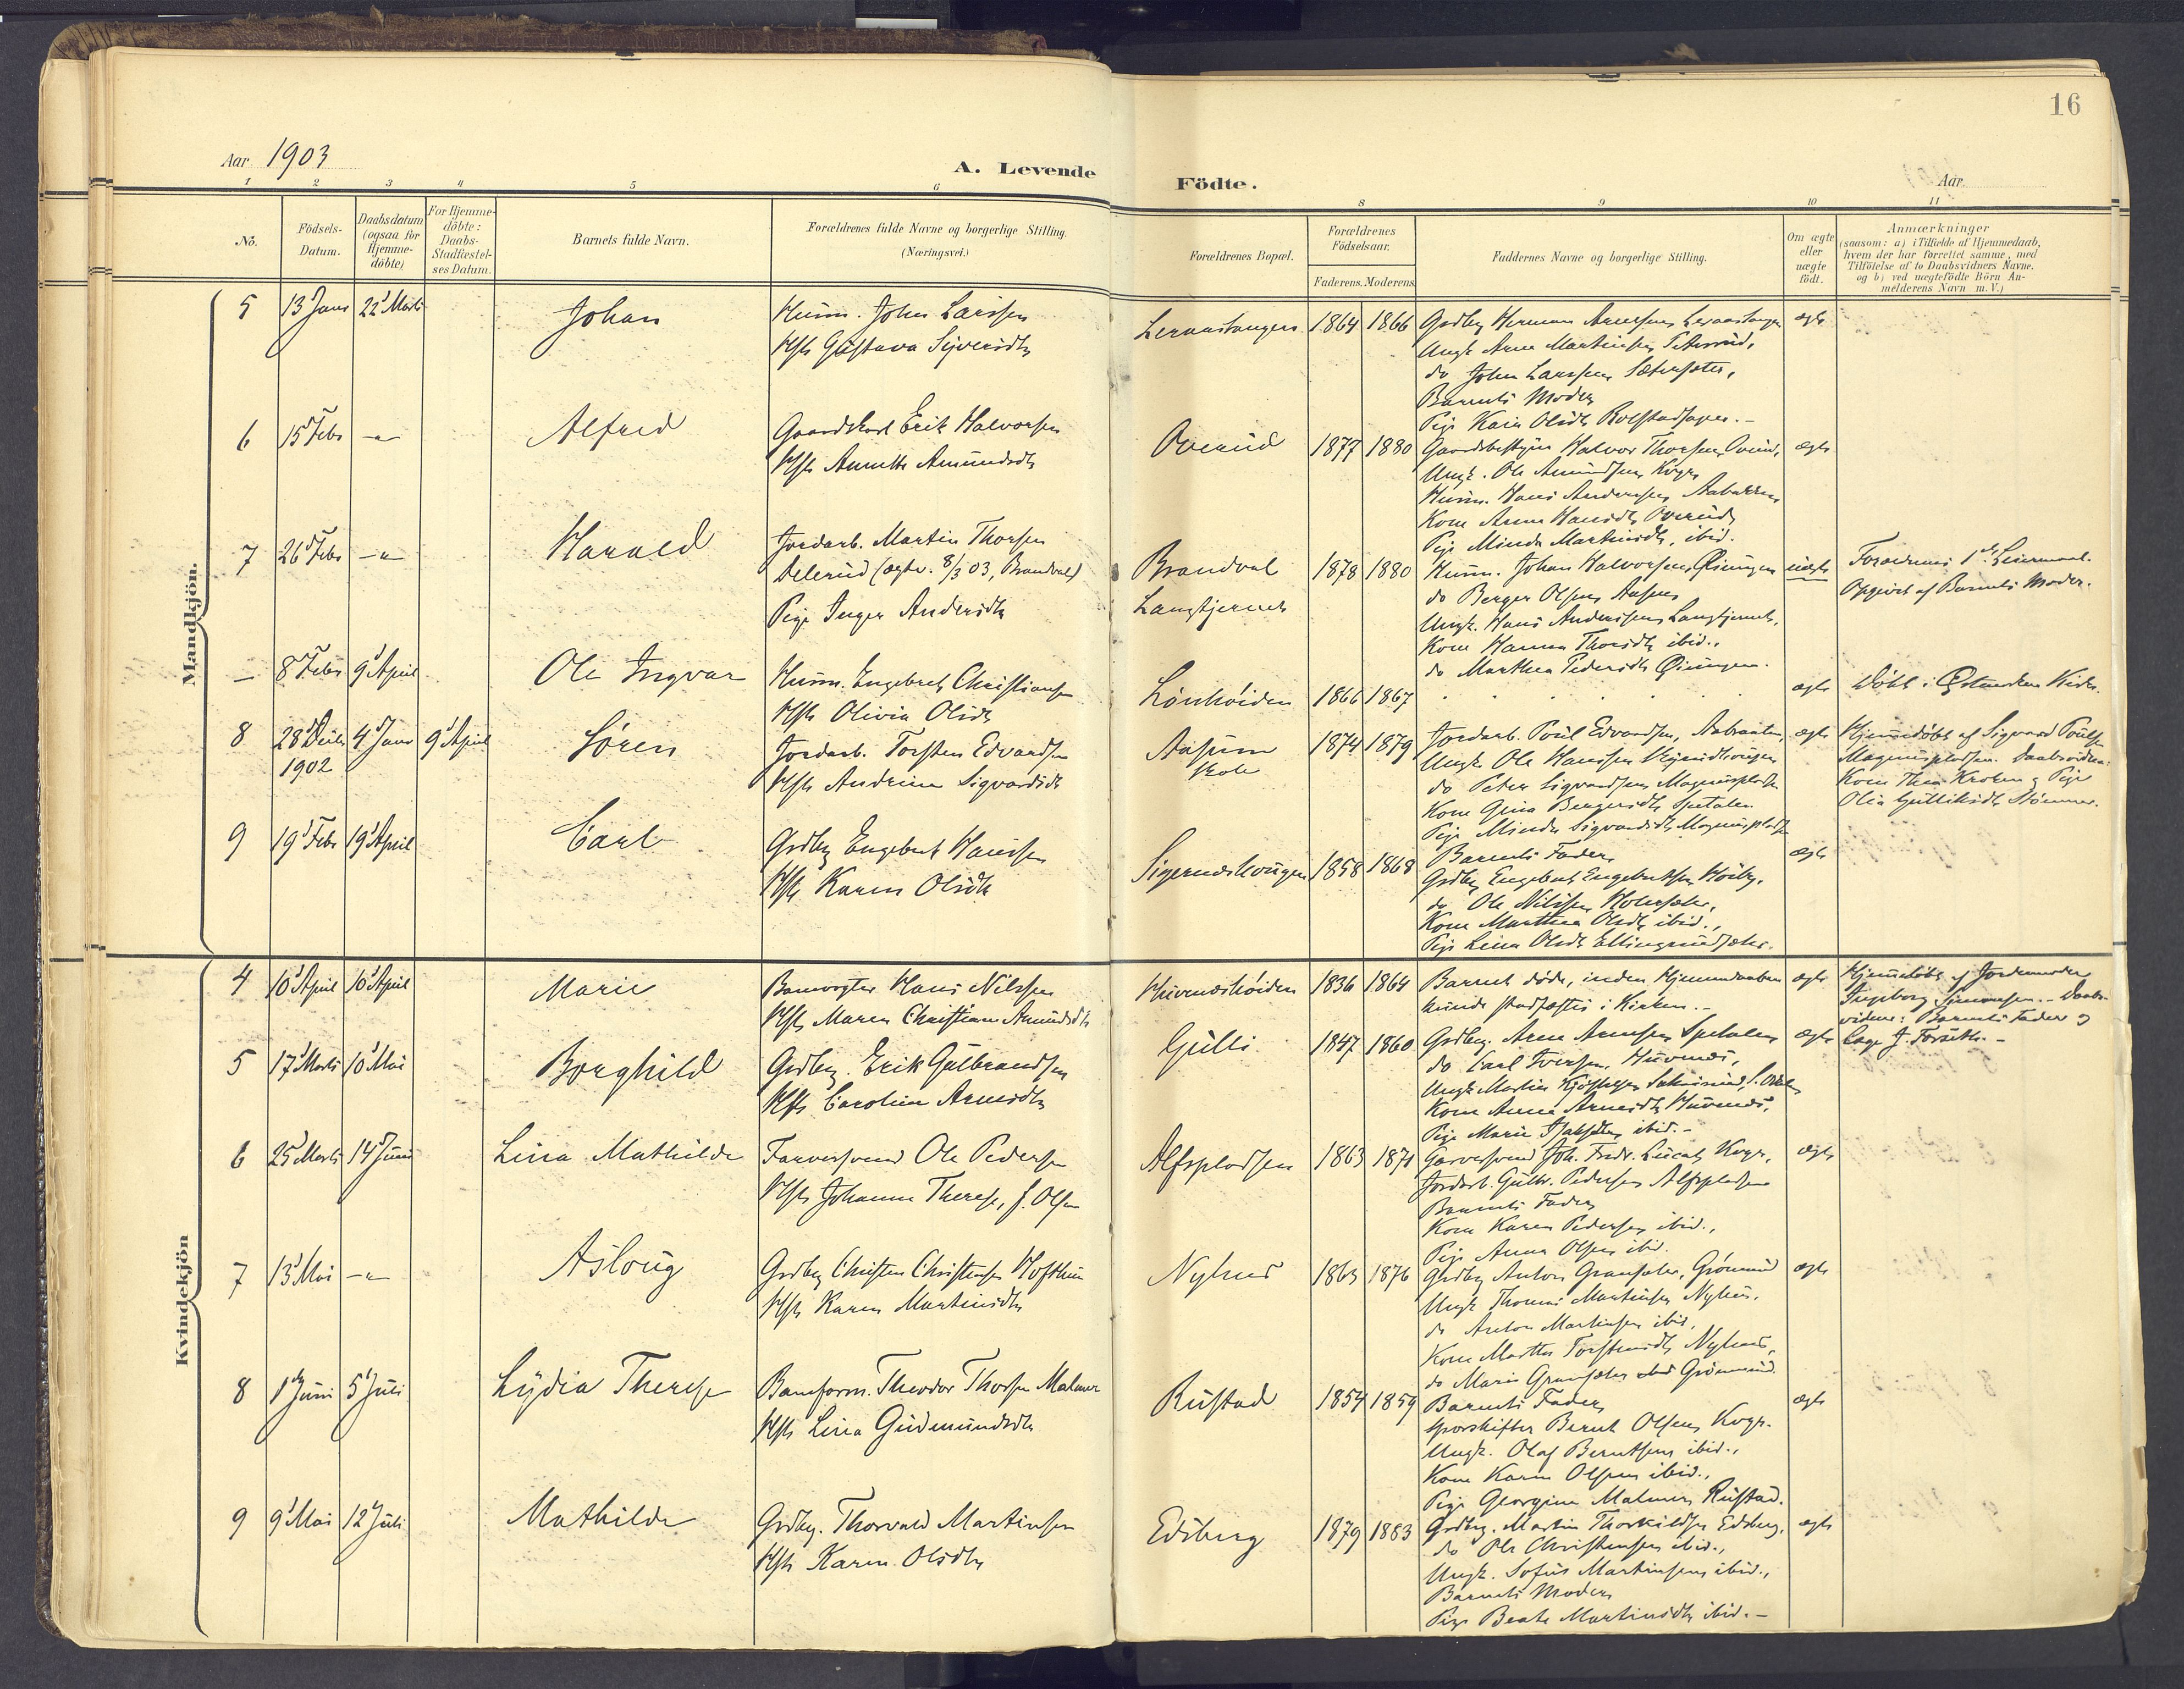 16
Aar 1903
A. Levende Födte.
Aar
1 2 3 4 5 6 8 9 10 11
No.
Födsels-Datum.
Daabsdatum (ogsaa for Hjemme-döbte)
For Hjemme-döbte: Daabs-Stadfæstel-ses Datum.
Barnets fulde Navn.
Forældrenes fulde Navne og borgerlige Stilling. (Næringsvei.)
Forældrenes Bopæl.
Forældrenes Födselsaar.
Faderens. Moderens.
Faddernes Navne og borgerlige Stilling.
Om ægte eller uægte födt.
Anmærkninger
(saasom: a) i Tilfælde af Hjemmedaab,
hvem der har forrettet samme, med
Tilföielse af to Daabsvidners Navne,
og b) ved uægtefödte Börn An-
melderens Navn m.V.)
Mandkjön.
5 13 Janr 22 Marts Johan
Husm. John Larssen
Hst Gustava Syversdtr
1864 1866
Grdbr Herman Arnesen
Ungk Arne Martinsen
do John Larssen
Barnets Moder
Pige Kaia Olsdtr
ægte
6 15 Febr -"- Alfred
Gaardskarl Erik Halvorsen
Hst Annette Amundsdtr
Overud 1877 1880
Gaardsbestyrer Halvor Thorsen Overud,
Ungk. Ole Amundsen Kogr.
Husm. Hans Andersen
Kone Anne Hansdtr Overud
Pige Minda Martinsdtr, ibid.
ægte
7 26 Febr -"- Harald
Jordarb. Martin Thorsen
(ægtev. 8/3 03, Brandval)
Pige Inger Andersdtr
Brandval
Langtjernet
1878 1880
Husm. Johan Halvorsen
do Berger Olsen Aasen
Ungk. Hans Anderssen Langtjernet,
Kone Hanna Thorsdtr ibid.,
do Marthea Pedersdtr
uægte
Forældrenes 1ste Leiermaal.
Opgivet af Barnets Moder.
– 8 Febr 9 April Ole Ingvar
Husm. Engebret Christiansen
Hst Olivia Olsdtr
Lönhöiden 1866 1867
ægte
Döbt i Kirke.
8 28 Decbr 1902 4 Janr 9 April Sören
Jordarb. Torsten Edvardsen
Hst Andrine Sigvardsdtr
Aasum
skole
1874 1879
Jordarb. Poul Edvardsen,
Ungk Ole Hanssen
do Peter Sigvardsen Magnusplads
Kone Gina Bergersdtr Spetalen
Pige Minda Sigvardsdtr Magnusplads
ægte
Hjemmedöbt af Sigvard Poulsen
Magnuspladsen. Daabsvidner:
Kone Thea Kroken og Pige
Olia Gulliksdtr
9 19 Febr 19 April Carl
Grdbr Engebret Hanssen
Hst Karen Olsdtr
1858 1868
Barnets Fader,
Grdbr Engebret Engebretsen Höiby,
do Ole Nilssen
Kone Marthea Olsdtr ibid.,
Pige Lina Olsdtr
ægte
Kvindekjön
4 10 April 10 April Marie
Banevogter Hans Nilssen
Hst Maren Christian Amundsdtr
1836 1864
Barnet döde, inden Hjemmedaaben
kunde stadfæstes i Kirken.–
ægte
Hjemmedöbt af Jordemoder
Ingeborg Simensen.– Daabs-
vidner: Barnets Fader og
5 17 Marts 10 Mai Borghild
Grdbr. Erik Gulbrandsen
Hst Caroline Arnesdtr
Gulli 1847 1860
Grdbr. Arne Arnesen Spetalen
do Carl Iversen,
Ungk Martin
Kone Anne Arnesdtr
Pige Marie ibid.–
ægte
6 25 Marts 14 Juni Lina Mathilde
Farversvend Ole Pedersen
Hst Johanne Therese, f. Olsen
Alfspladsen 1863 1871
Garversvend Joh. Fredr. Kogr.,
Jordarb. Gulbr. Pedersen Alfspladsen
Barnets Fader,
Kone Karen Pedersen ibid.,
Pige Anna Olsen ibid.
ægte
7 13 Mai -"- Aslaug
Grdbr Christen Christensen
Hst Karen Martinsdtr
Nyhus 1863 1876
Grdbr Anton Granseter,
Ungk Thomas Martinsen Nyhus,
do Anton Martinsen ibid,
Kone Marthe Nyhus,
do Marie
ægte
8 1 Juni 5 Juli Lydia Therese
Baneform. Theodor Thorsen Malmer
Hst Lina Gudmundsdtr
Rustad 1854 1859
Barnets Fader,
Sporskifter Bernt Olsen Kogr.
Ungk. Olaf Berntsen ibid.,
Kone Karen Olsen ibid.,
Pige Georgine Malmer, Rustad.
ægte
9 9 Mai 12 Juli Mathilde
Grdbr. Thorvald Martinsen
Hst Karen Olsdtr
Edsberg 1879 1883
Grdbr. Martin Thorkildsen Edsberg,
do Ole Christensen ibid.,
Ungk. Sofus Martinsen ibid.,
Barnets Moder,
Pige Beate Martinsdtr ibid.–
ægte